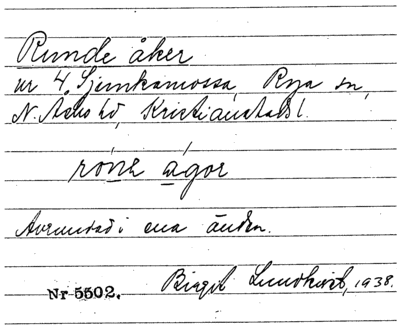 Runde åker
nr 4, Sjunkamossa, Rya sn,
N. Åsbo hd, Kristianstads l.
rónə ágor
Avrundad i ena änden.
Nr 5502. Birgit Lundkvist, 1938.